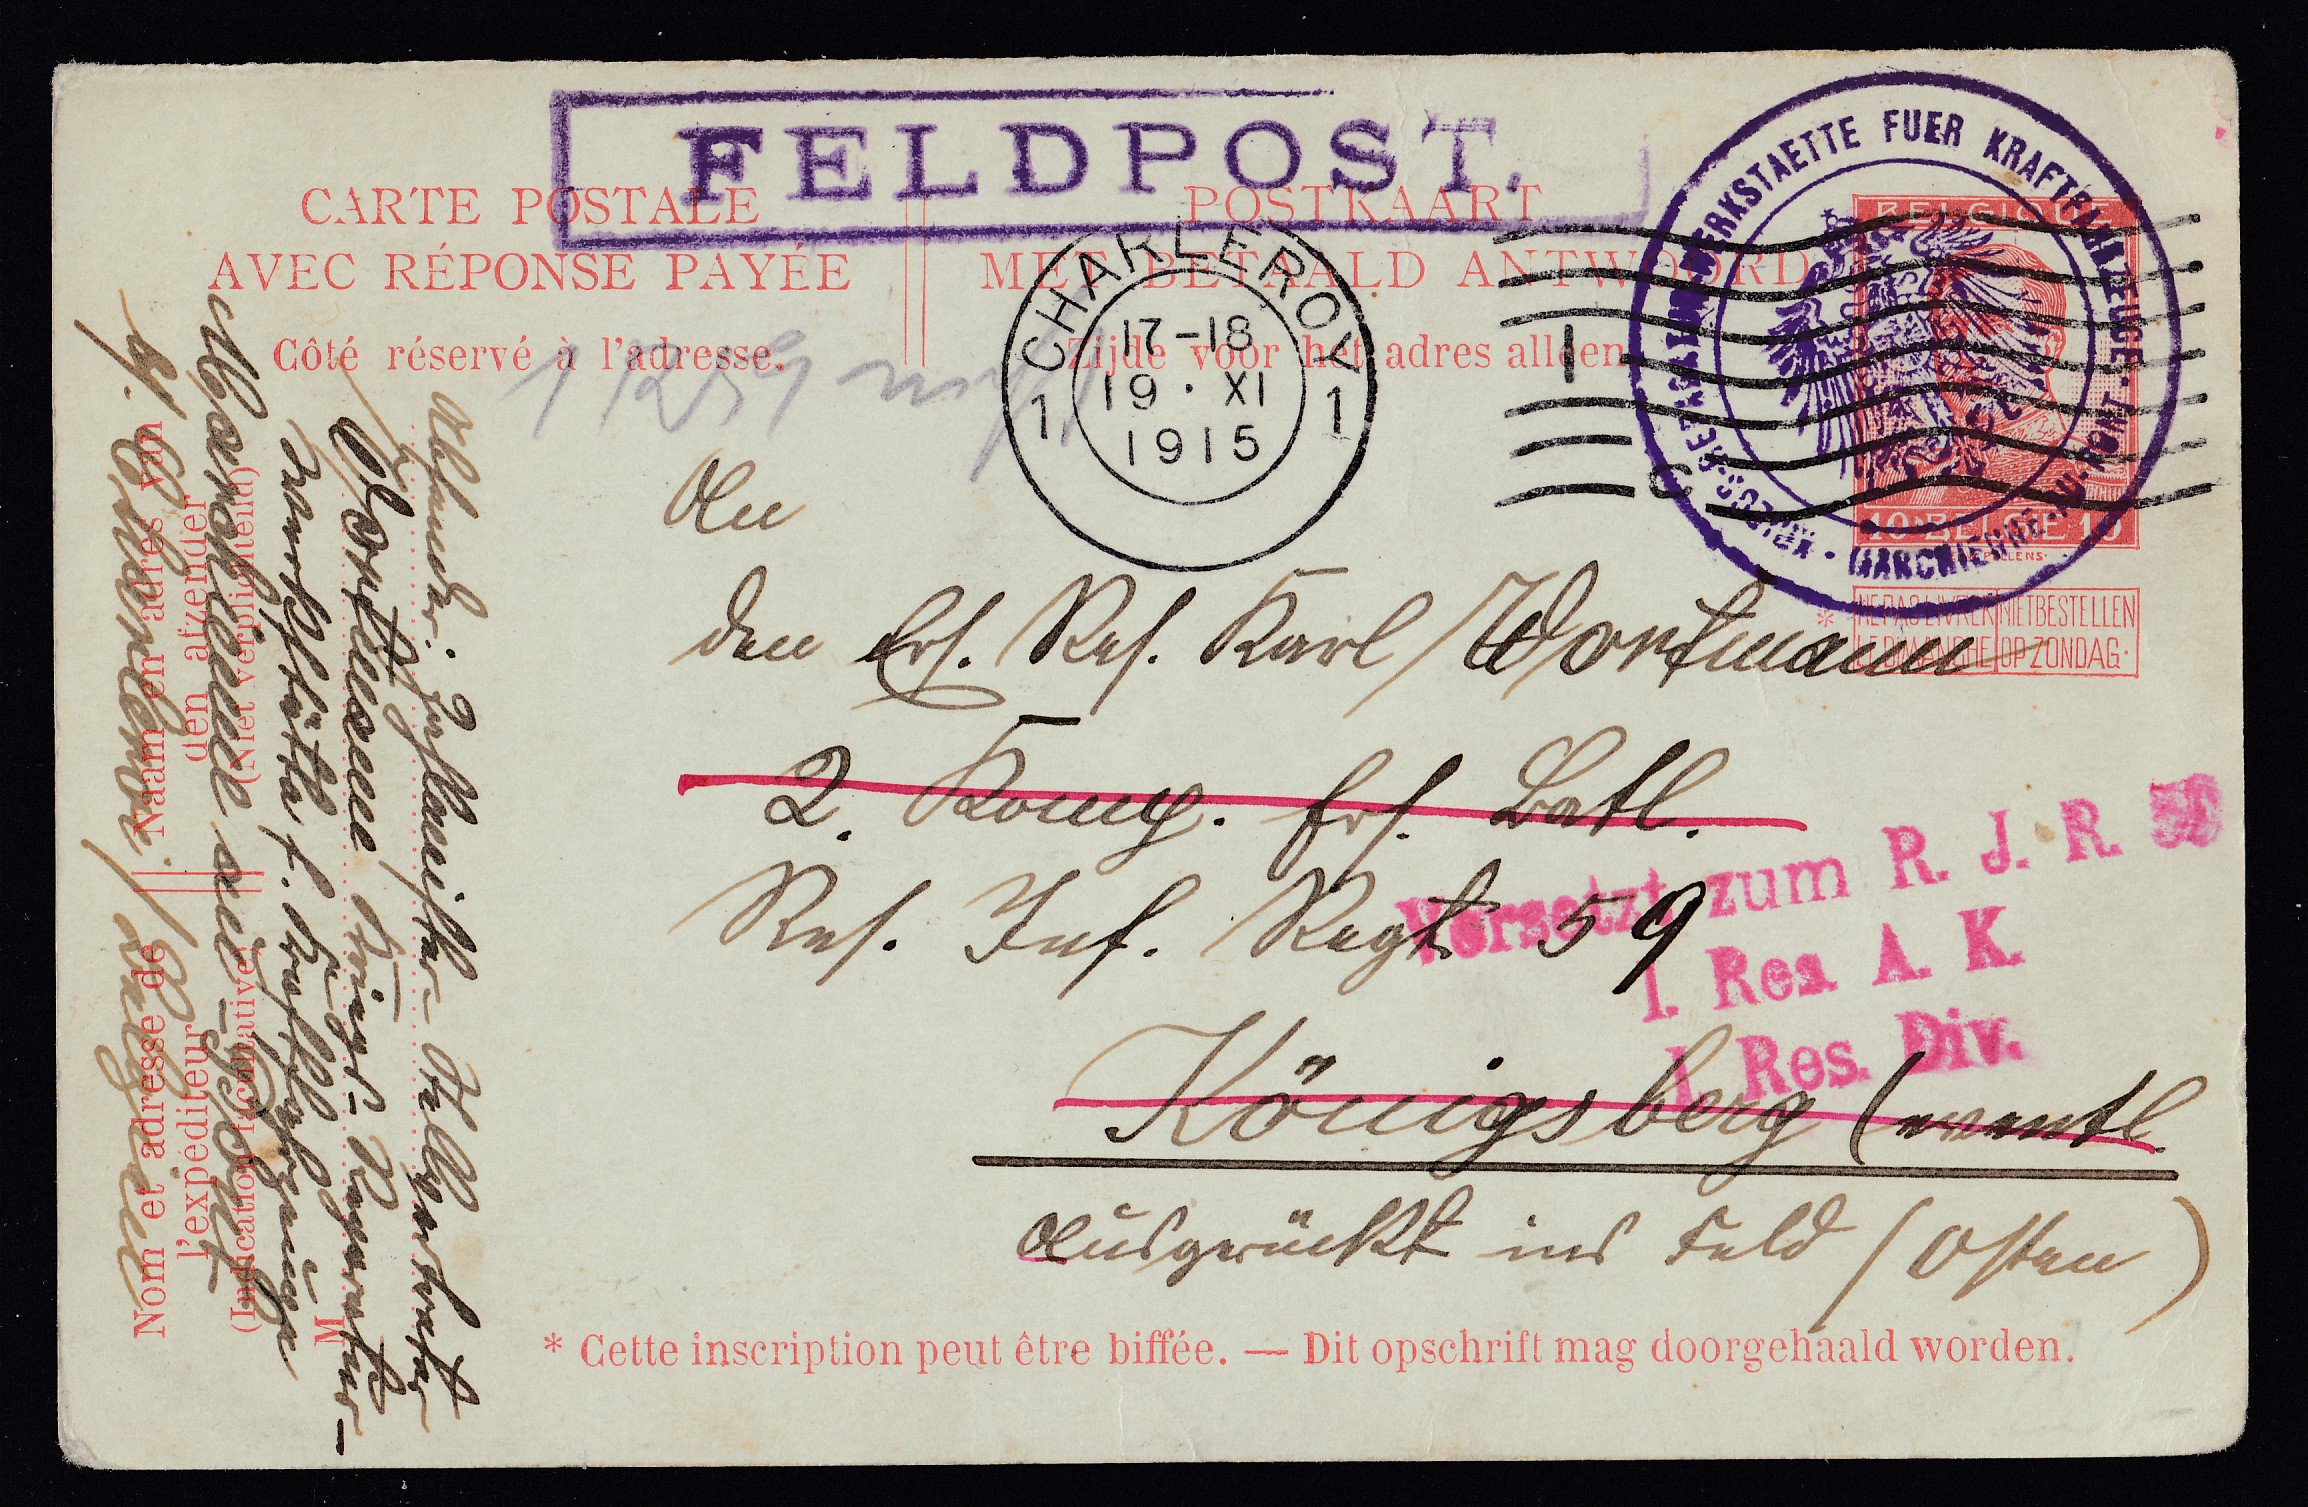 FELDPOST.
CARTE POSTALE
AVEC RÉPONSE PAYÉE
Côté réservé à l'adresse.
POSTKAART
MET BETAALD ANTWOORD
Zijde voor het adres alleen
CHARLEROY
1 1
17-18
19 · XI
1915
WERKSTAETTE FUER KRAFTFAHRZEUGE
MARCHIENNE · AU · PONT
BELGIQUE
10 BELGIE 10
* NE PAS LIVRER LE DIMANCHE
NIET BESTELLEN OP ZONDAG
An
den Ers. Res. Karl Wortmann
2. Komp. Ers. Batl.
Res. Inf. Regt 59
Königsberg (eventl.
Ausgerückt ins Feld (Osten)
Versetzt zum R. J. R. 59
I. Res. A. K.
1. Res. Div.
* Cette inscription peut être biffée. — Dit opschrift mag doorgehaald worden.
Absender: Zahlmeister-Stellvertreter
Wortmann Königs-Reparatur-
werkstätte f. Kraftfahrzeuge
Marchienne au-Pont
b. Charleroi / Belgien
Naam en adres van
den afzender
(Niet verplichtend)
Nom et adresse de
l'expéditeur
(Indication facultative)
M